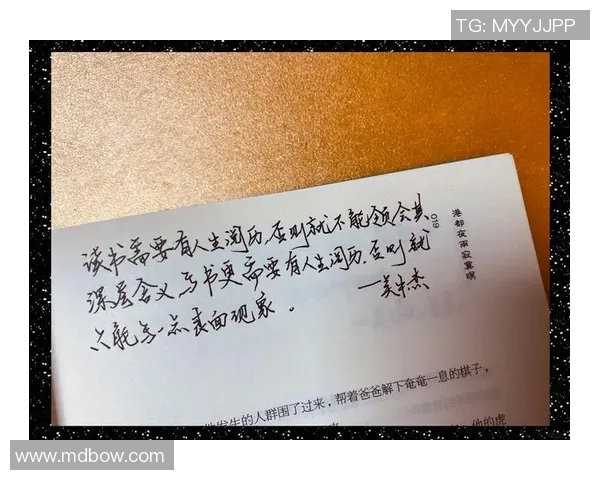 TG: MYYJJPP
读书需要有人生阅历,否则就不能领会其
深层含义,写书更需要有人生阅历,否则就
只能写一点表面现象。
019
港都夜雨寂寞暝
发生的人群围了过来,帮着爸爸解下奄奄一息的棋子,
他的虎
www.mdbow.com